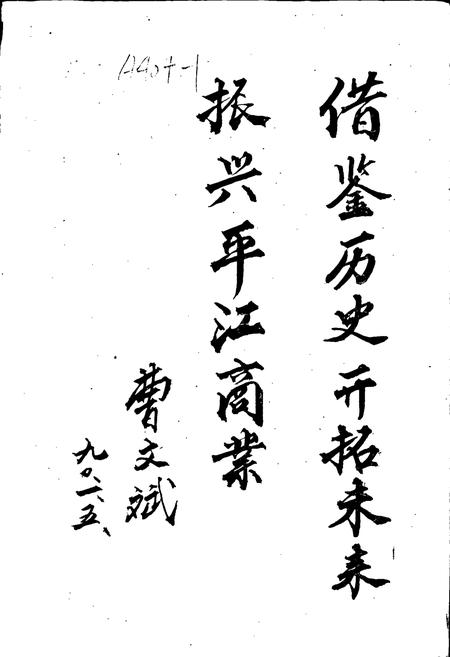 借鉴历史开拓未来
振兴平江商業
曹文斌
九〇、一、五、